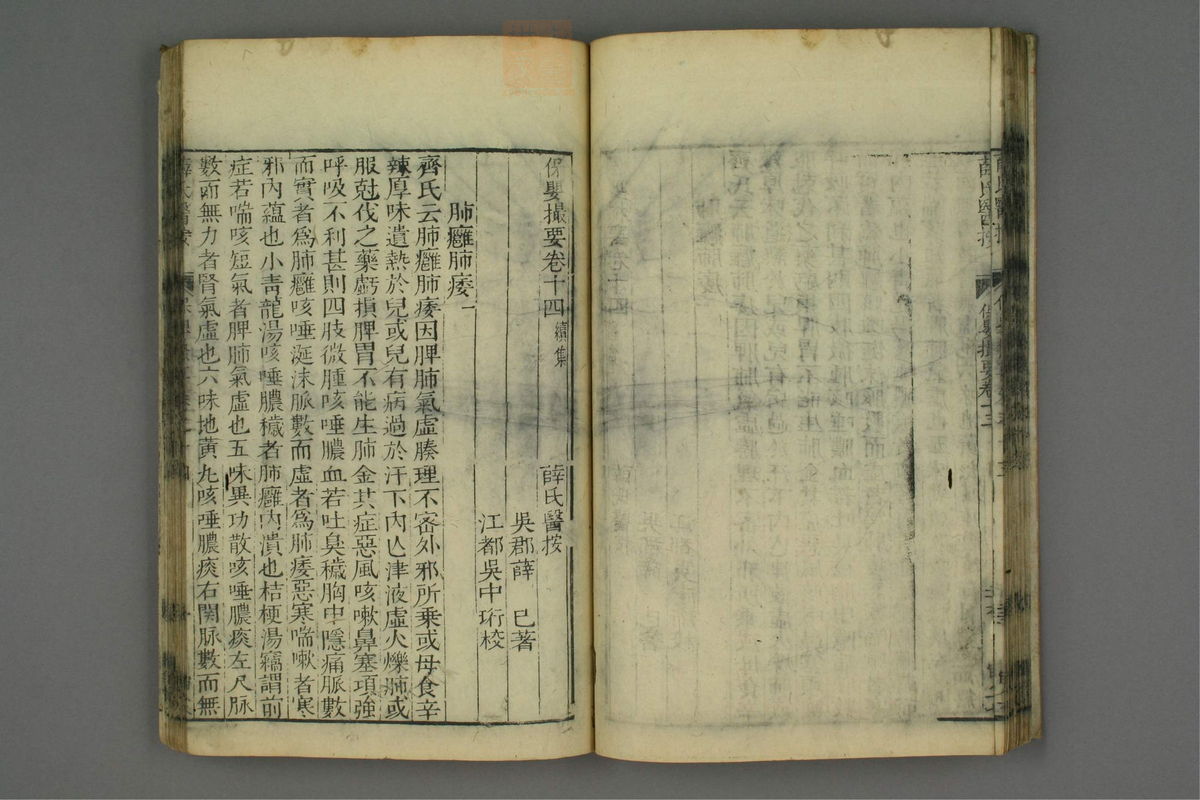 薛氏醫按
保嬰撮要卷十三
保嬰撮要卷十四 續集 薛氏醫按
吳郡薛 已著
江都吳中珩校
肺癰肺痿一
齊氏云肺癰肺痿因脾肺氣虛腠理不密外邪所乘或母食辛
辣厚味遺熱於兒或兒有病過於汗下內亾津液虛火爍肺或
服尅伐之藥虧損脾胃不能生肺金其症惡風咳嗽鼻塞項強
呼吸不利甚則四肢微腫咳唾膿血若吐臭穢胸中隱痛脈數
而實者爲肺癰咳唾涎沫脈數而虛者爲肺痿惡寒喘嗽者寒
邪內蘊也小青龍湯咳唾膿穢者肺癰內潰也桔梗湯竊謂前
症若喘咳短氣者脾肺氣虛也五味異功散咳唾膿痰左尺脉
數而無力者腎氣虛也六味地黃丸咳唾膿痰右関脉數而無
薛氏醫按